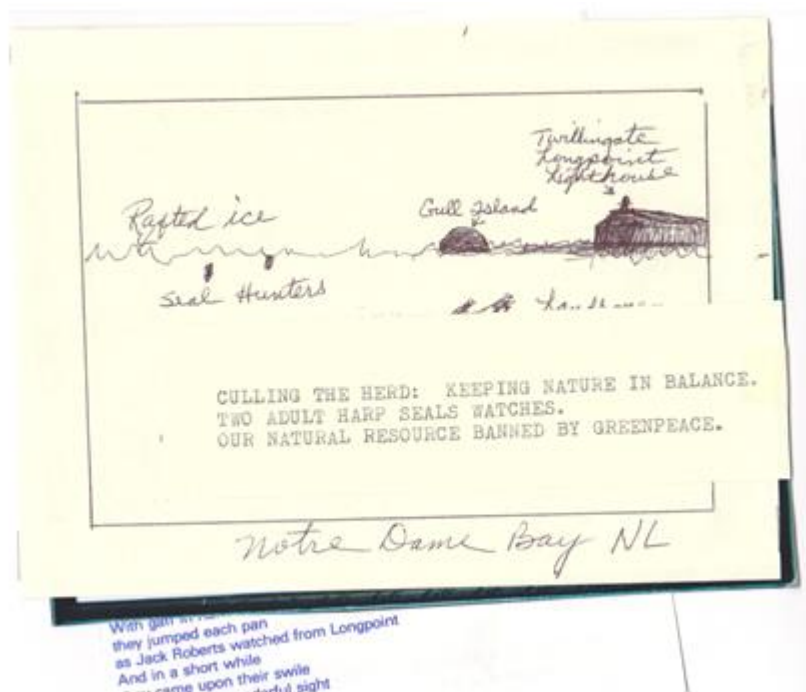 Twillingate
Longpoint
Lighthouse
Gull Island
Rafted ice
Seal Hunters
CULLING THE HERD: KEEPING NATURE IN BALANCE.
TWO ADULT HARP SEALS WATCHES.
OUR NATURAL RESOURCE BANNED BY GREENPEACE.
Notre Dame Bay NL
With gaff in
they jumped each pan
as Jack Roberts watched from Longpoint
And in a short while
came upon their swile
sight